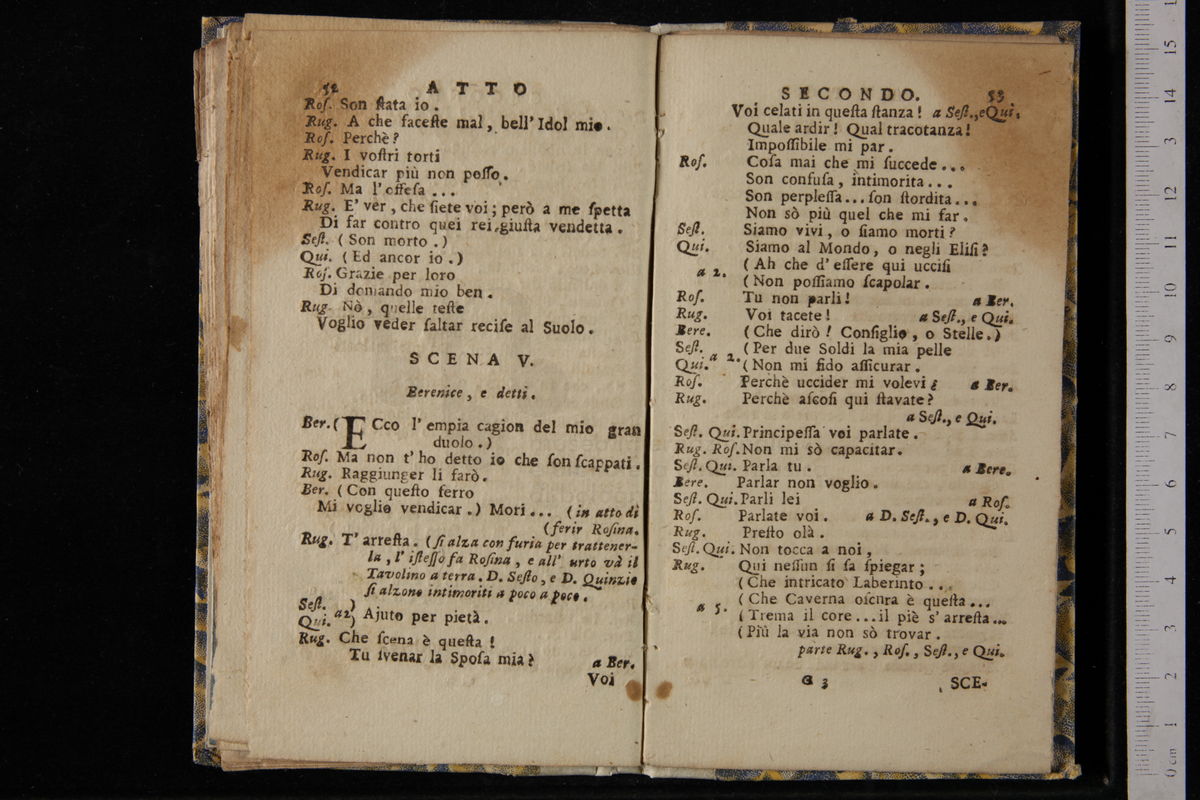 52 ATTO
Roſ. Son ſtata io .
Rug. A che faceſte mal, bell' Idol mio.
Roſ. Perchè?
Rug. I voſtri torti
Vendicar più non poſſo.
Roſ. Ma l'offeſa ...
Rug. E' ver, che ſiete voi; però a me ſpetta
Di far contro quei rei giuſta vendetta .
Seſt. (Son morto .)
Qui. (Ed ancor io .)
Roſ. Grazie per loro
Di domando mio ben .
Rug. Nò, quelle teſte
Voglio veder ſaltar reciſe al Suolo .
SCENA V.
Berenice, e detti .
Ber. ( ECco l' empia cagion del mio gran
duolo .)
Roſ. Ma non t' ho detto io che ſon ſcappati .
Rug. Raggiunger li farò.
Ber. (Con queſto ferro
Mi voglio vendicar .) Mori ... (in atto di
(ferir Roſina.
Rug. T' arreſta. (ſi alza con furia per trattener-
la, l' iſteſſo fa Roſina, e all' urto và il
Tavolino a terra. D. Seſto, e D. Quinzio
ſi alzono intimoriti a poco a poco .
Seſt. )
Qui. a 2) Ajuto per pietà .
Rug. Che ſcena è queſta !
Tu ſvenar la Spoſa mia? a Ber.
Voi
SECONDO. 53
Voi celati in queſta ſtanza! a Seſt., e Qui.
Quale ardir! Qual tracotanza!
Impoſſibile mi par .
Roſ. Coſa mai che mi ſuccede ...
Son confuſa, intimorita ...
Son perpleſſa ... ſon ſtordita ...
Non sò più quel che mi far .
Seſt. Siamo vivi, o ſiamo morti?
Qui. Siamo al Mondo, o negli Eliſi?
(Ah che d' eſſere qui ucciſi
a 2.
(Non poſſiamo ſcapolar .
Roſ. Tu non parli! a Ber.
Rug. Voi tacete! a Seſt., e Qui.
Bere. (Che dirò! Conſiglio, o Stelle.)
Seſt. (Per due Soldi la mia pelle
Qui. a 2. (Non mi fido aſſicurar .
Roſ. Perchè uccider mi volevi ¿ a Ber.
Rug. Perchè aſcoſi qui ſtavate?
a Seſt., e Qui.
Seſt. Qui. Principeſſa voi parlate .
Rug. Roſ. Non mi sò capacitar.
Seſt. Qui. Parla tu . a Bere.
Bere. Parlar non voglio .
Seſt. Qui. Parli lei a Roſ.
Roſ. Parlate voi . a D. Seſt., e D. Qui.
Rug. Preſto olà .
Seſt. Qui. Non tocca a noi,
Rug. Qui neſſun ſi ſa ſpiegar ;
(Che intricato Laberinto ...
(Che Caverna oſcura è queſta ...
a 5.
(Trema il core ... il piè s' arreſta ...
(Più la via non sò trovar .
parte Rug., Roſ., Seſt., e Qui.
G 3 SCE-
0 cm 1 2 3 4 5 6 7 8 9 10 11 12 13 14 15